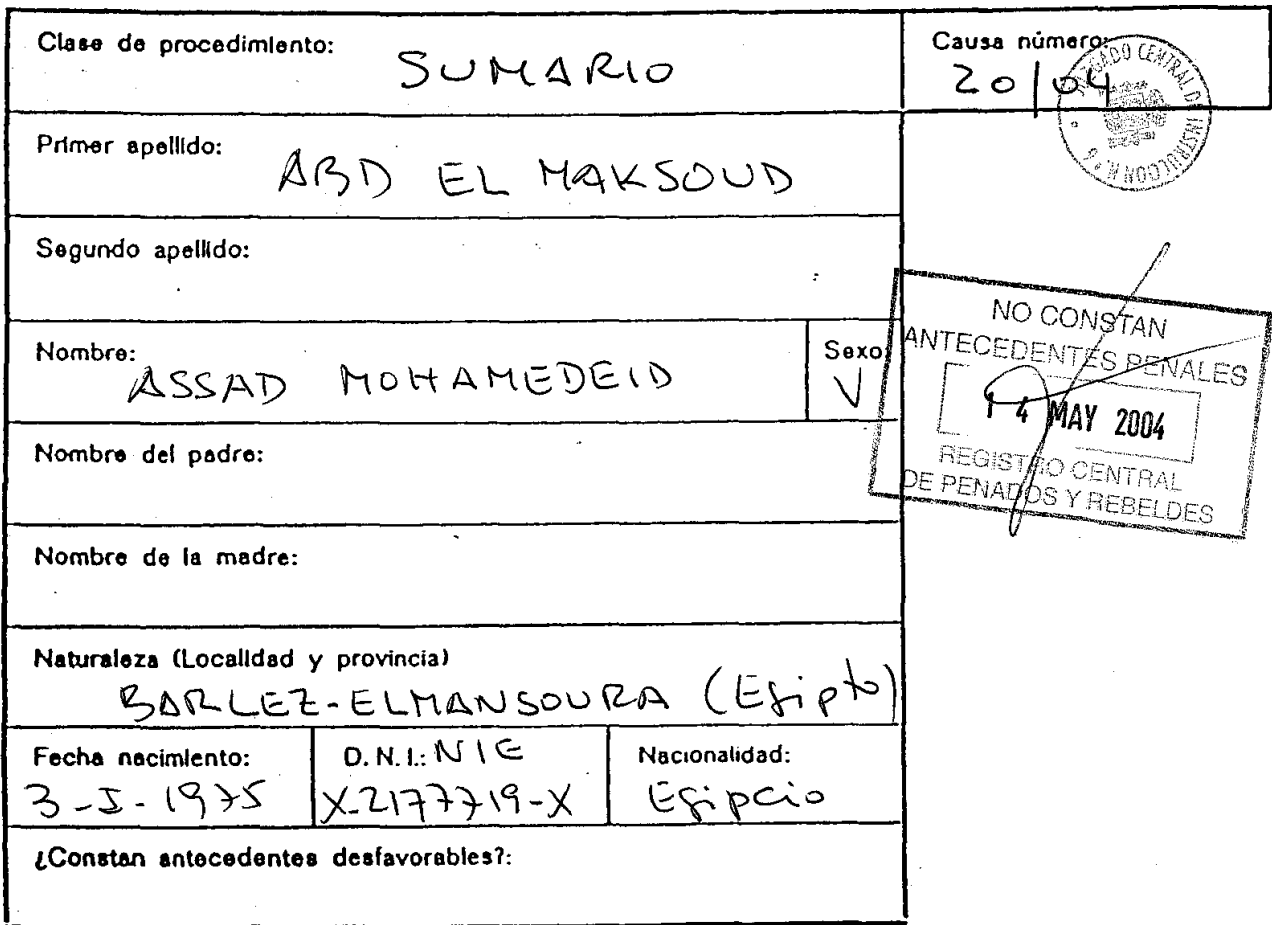 Clase de procedimiento:
SUMARIO
Causa número:
20/04
JUZGADO CENTRAL DE INSTRUCCION N.º 6
Primer apellido:
ABD EL MAKSOUD
Segundo apellido:
Nombre:
ASSAD MOHAMEDEID
Sexo:
V
NO CONSTAN
ANTECEDENTES PENALES
14 MAY 2004
REGISTRO CENTRAL
DE PENADOS Y REBELDES
Nombre del padre:
Nombre de la madre:
Naturaleza (Localidad y provincia)
BARLEZ-ELMANSOURA (Egipto)
Fecha nacimiento:
3-I-1975
D.N.I.: NIE
X-2177719-X
Nacionalidad:
Egipcio
¿Constan antecedentes desfavorables?: